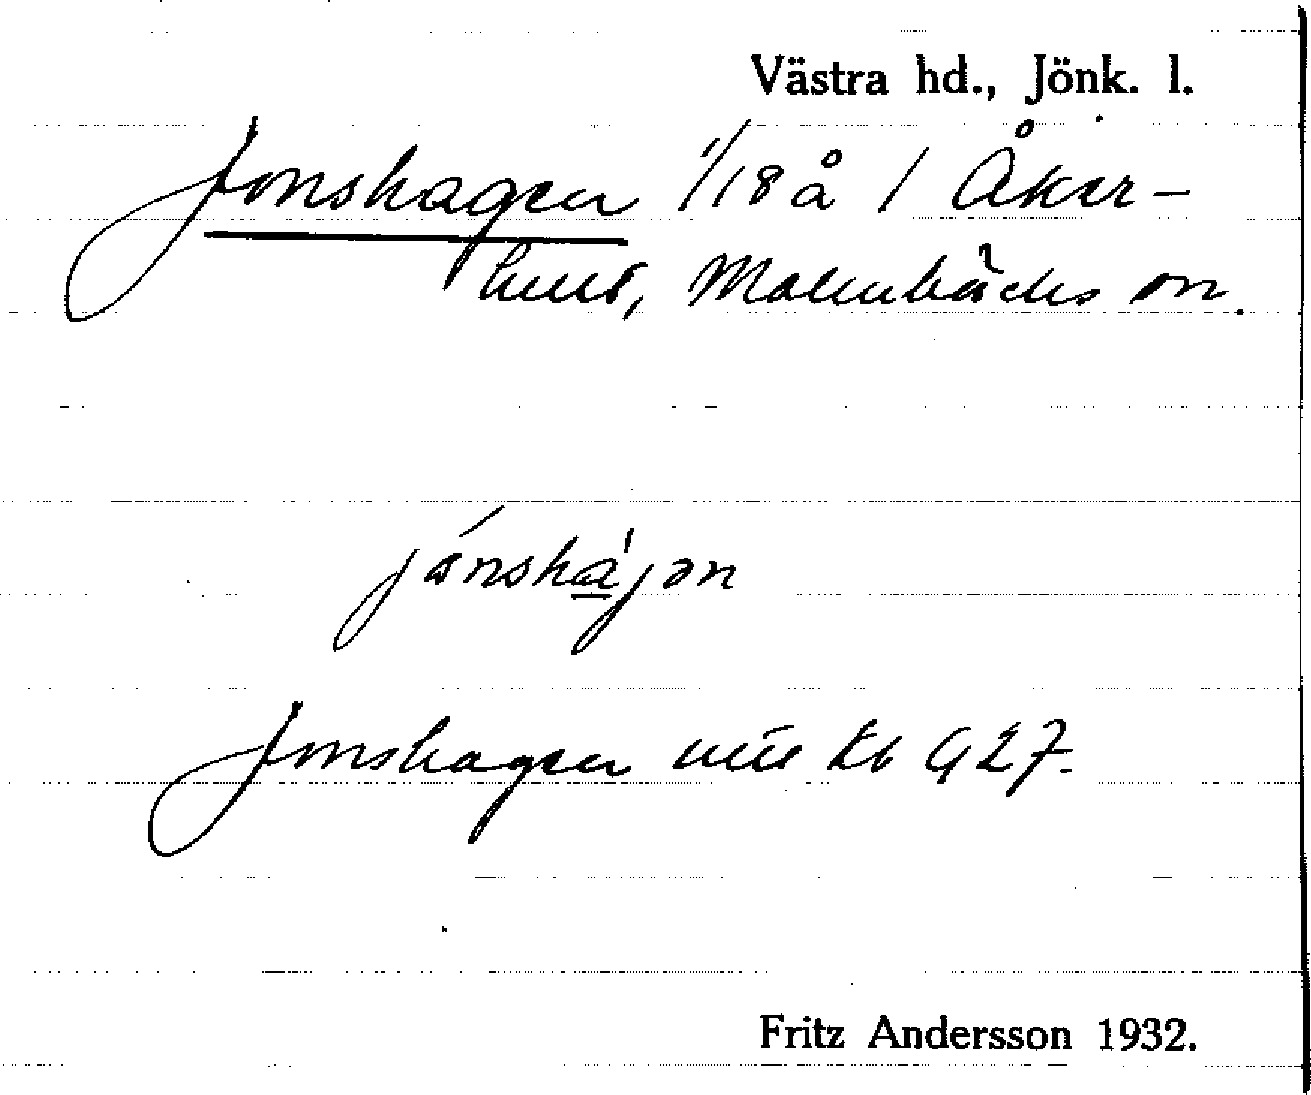 Västra hd., Jönk. l.
Jonshagen 1/18 å 1 Åker-
hult, Malmbäcks sn.
jånsha̱jən
Jonshagen Kb 927.
Fritz Andersson 1932.